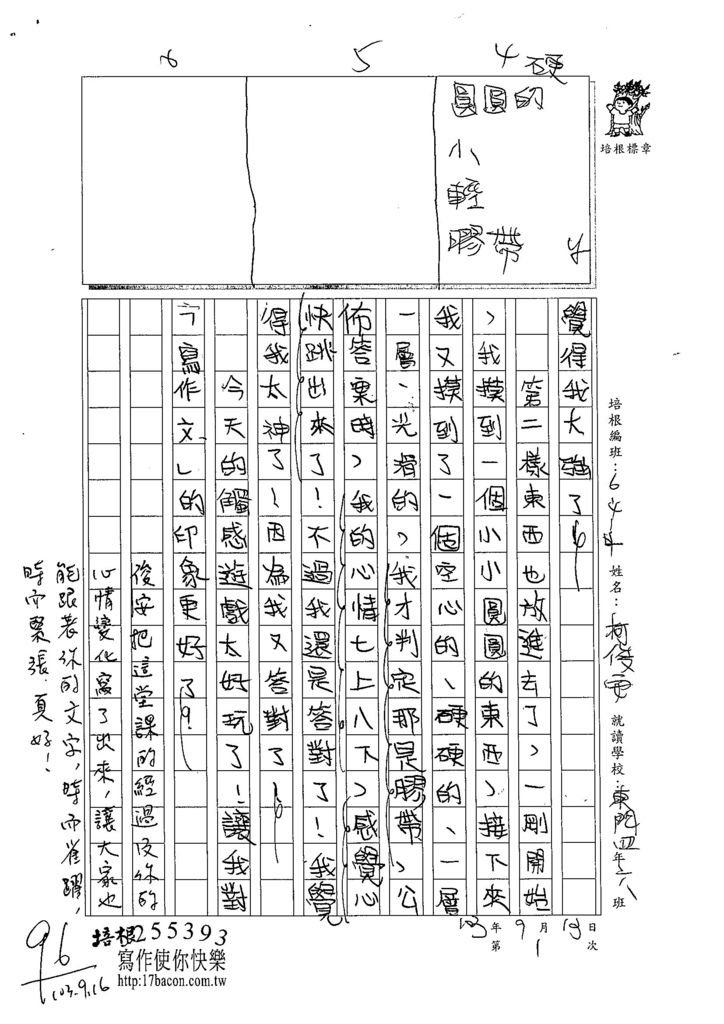 4 硬
5
6
圓圓的
小
輕
膠帶
培根標章
培根編班：
姓名：柯俊安
就讀學校：東門四年六班
103年9月13日
第1次
覺得我太強了！
第二樣東西也放進去了，一剛開始
，我摸到一個小小圓圓的東西，接下來
我又摸到了一個空心的、硬硬的、一層
一層、光滑的，我才判定那是膠帶，公
佈答案時，我的心情七上八下，感覺心
快跳出來了！不過我還是答對了！我覺
得我太神了！因為我又答對了！
今天的觸感遊戲太好玩了！讓我對
「寫作文」的印象更好了！
俊安把這堂課的經過及你的
心情變化寫了出來，讓大家也
能跟著你的文字，時而雀躍，
時而緊張，真好！
96
103.9.16
培根255393
寫作使你快樂
http:17bacon.com.tw